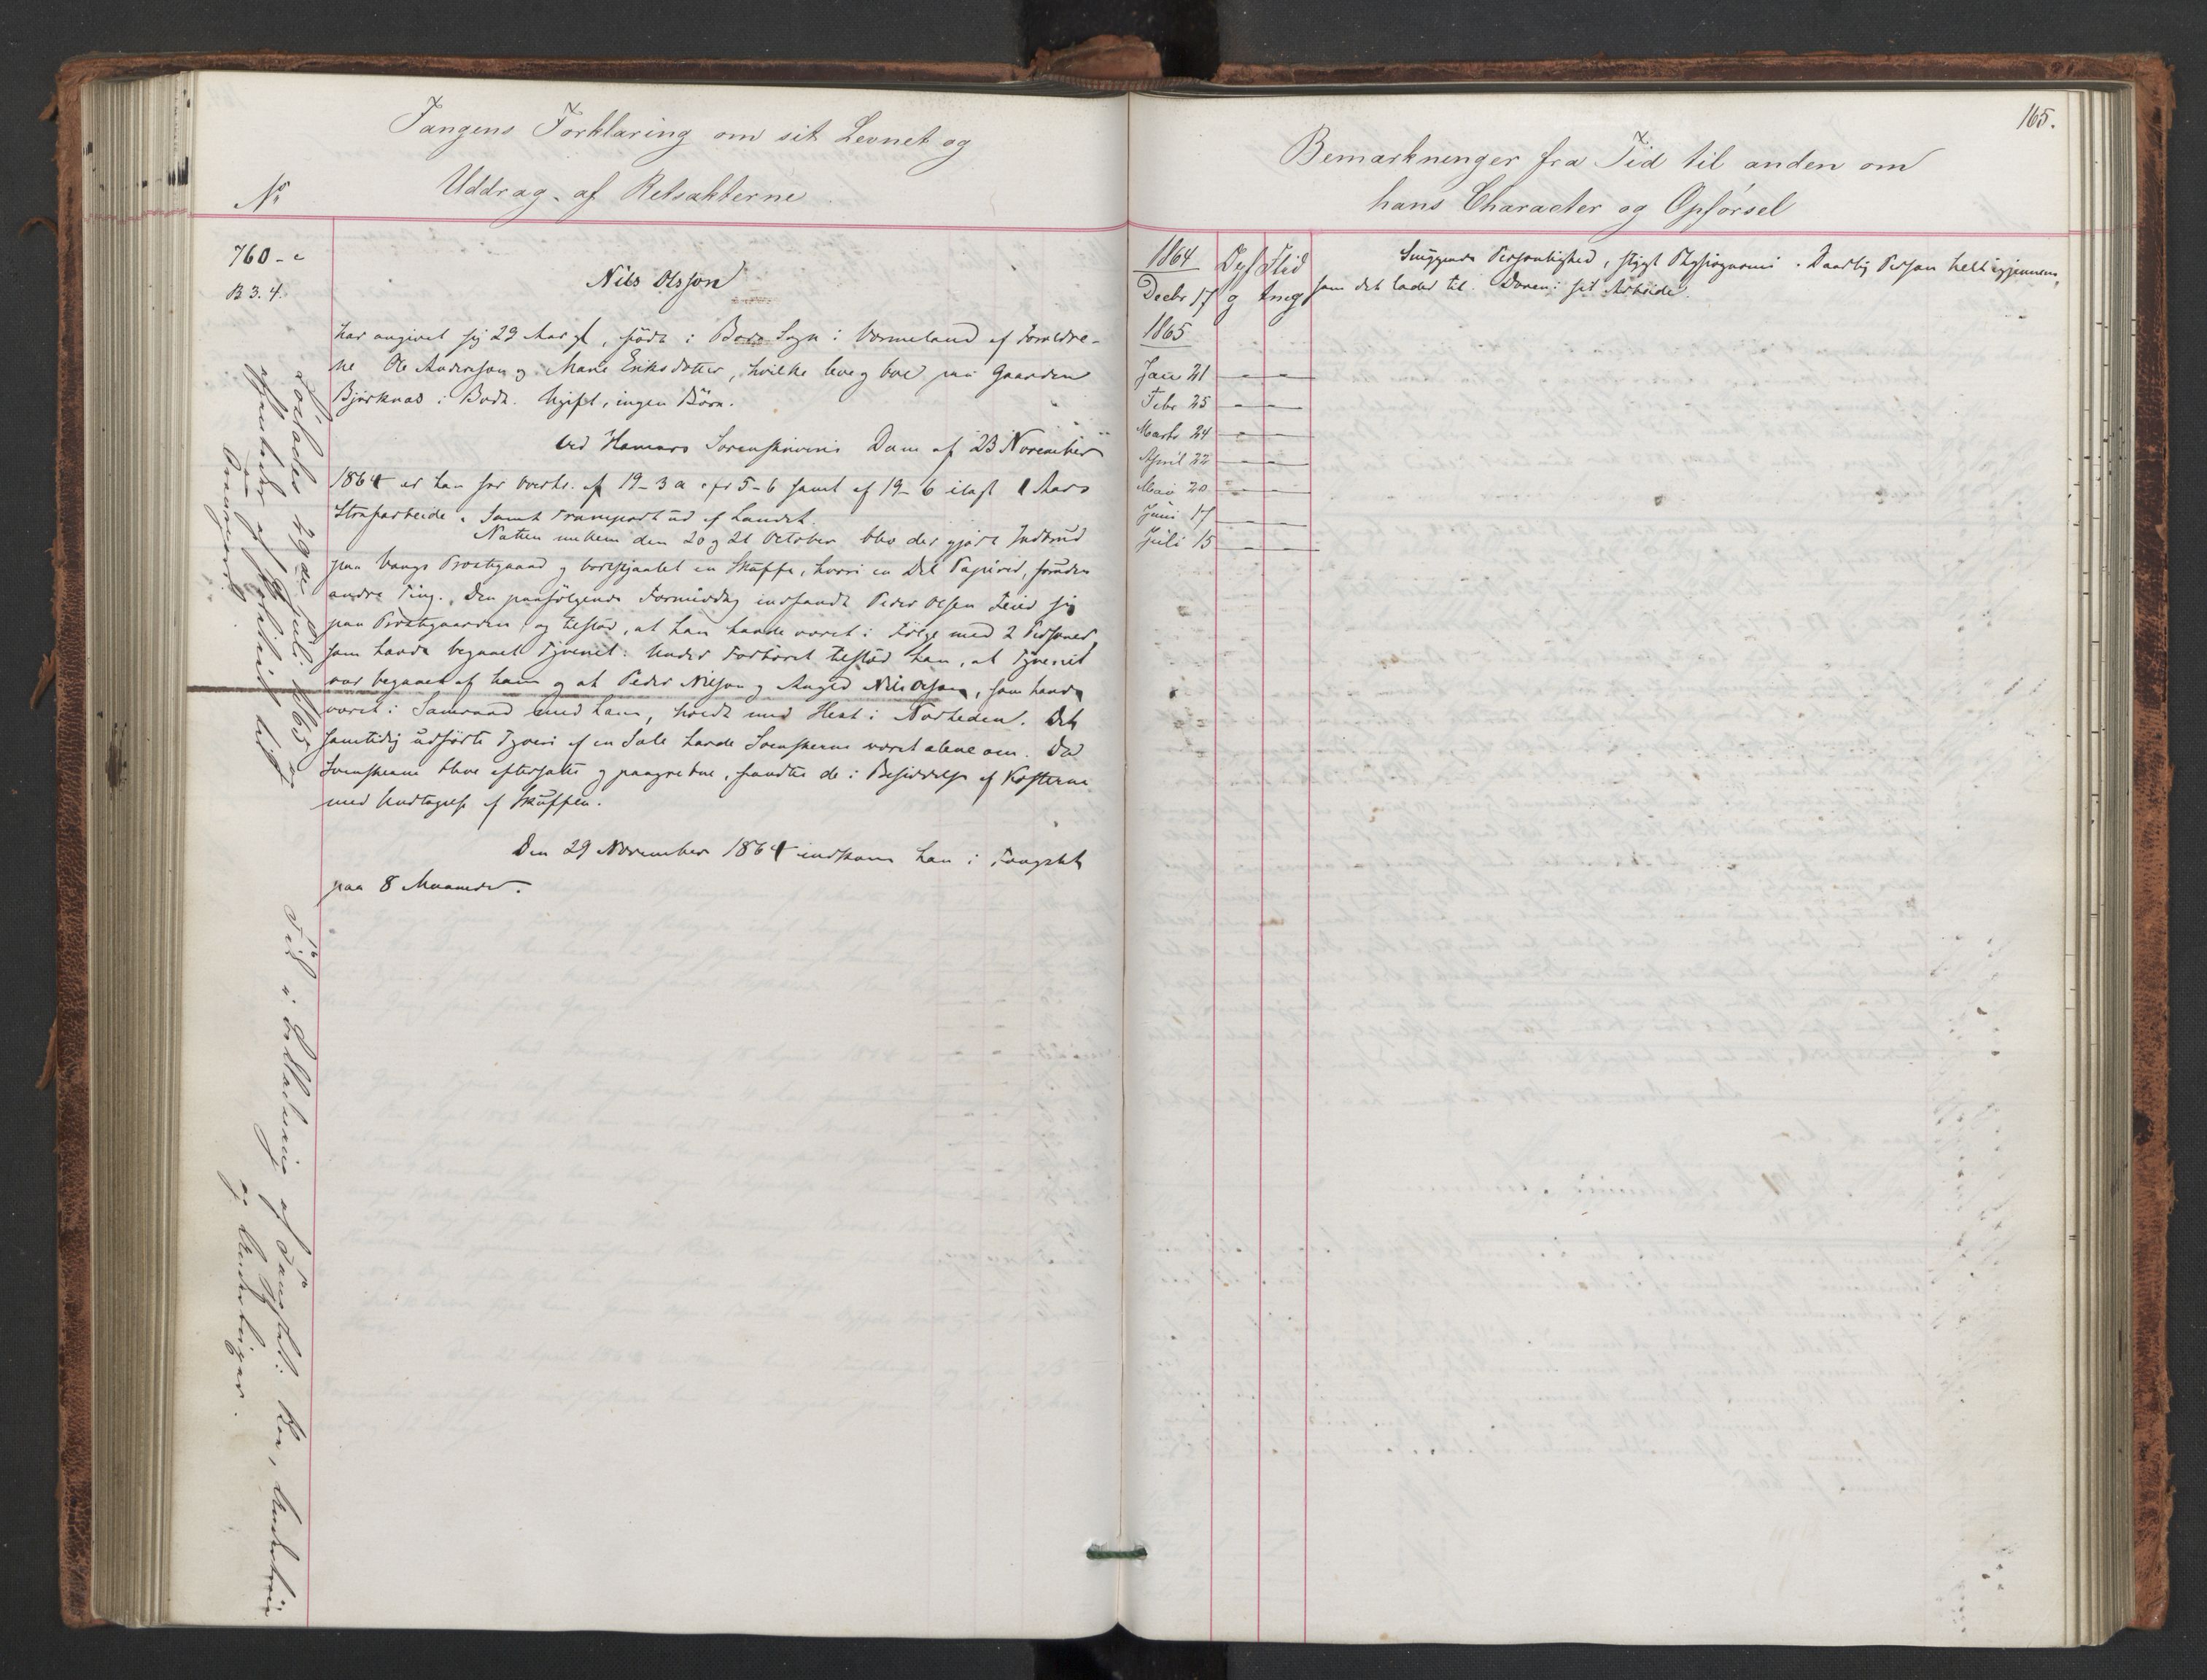 Fangens Forklaring om sit Levnet og
Uddrag af Retsakterne
No
760-c
B 3.4.
Nils Olsson
har angivet sig 29 Aar gl, født i Boda Sogn i Vermeland af Forældre-
ne Ole Andersson og Marie Eriksdotter, hvilke leve og boe paa Gaarden
Björknas i Boda. Ugift, ingen Börn.
Ved Hamars Sorenskriveris Dom af 23 November
1864 er han for Overtr. af 19-3 a cfr 5-6 samt af 19-6 ilagt 1 Aars
Strafarbeide. Samt Transport ud af Landet.
Natten mellem den 20 og 21 October blev der gjort Indbrud
paa Vangs Prostgaard og bortstjaalet en Skuffe, hvori en Del Papirer, foruden
andre Ting. Den paafølgende Formiddag indfandt Peder Olsen sig
paa Prostgaarden, og tilstod, at han havde været i Følge med 2 Personer,
som havde begaaet Tyveriet. Under Forhøret tilstod han, at Tyveriet
var begaaet af ham og at Peder Nilsson og Nils Olsson, som havde
været i Samraad med ham, holdt med Hest i Nærheden. Det
samtidig udførte Tyveri af en Sæle havde Svenskerne været alene om. Da
Svenskerne bleve eftersatte og paagrebne, fandtes de i Besiddelse af Kosterne
med Undtagelse af Skuffen.
Den 29 November 1864 indkom han i Fangslet
paa 8 Maaneder.
Løslades 29de Juli 1865 og
afsendes af Politiet til
Tid i Erklæring af Fangslet:
og Anmerkninger.
165.
Bemærkninger fra Tid til anden om
hans Character og Opførsel
1864 Opf Flid
Decbr 17 g tmg
1865
Jan 21 - -
Febr 25 - -
Marts 24 - -
April 22 - -
Mai 20 - -
Juni 17 - -
Juli 15 - -
Personlighed, stygt Physiognomi. Daarlig Person helt igjennem,
som det lader til. Doven i sit Arbeide.